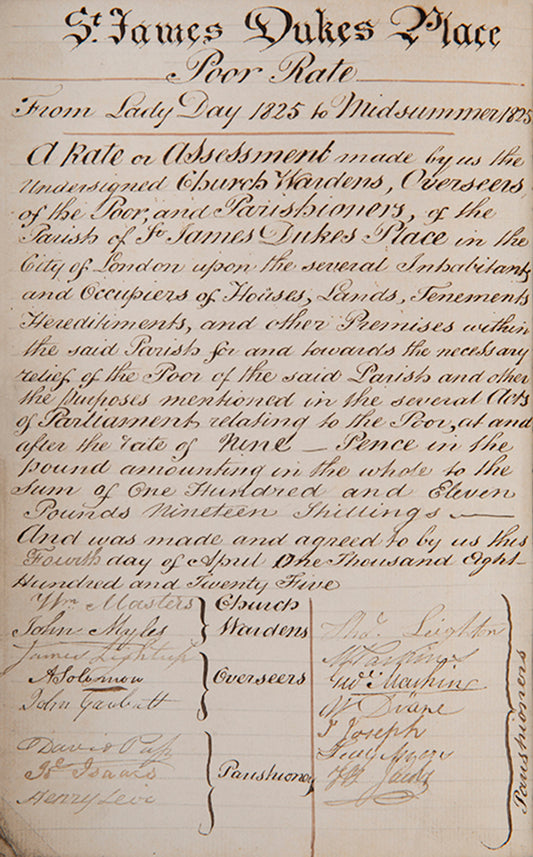 St. James Dukes Place
Poor Rate
From Lady Day 1825 to Midsummer 1825
A Rate or Assessment made by us the
Undersigned Church Wardens, Overseers,
of the Poor, and Parishioners, of the
Parish of St. James Dukes Place in the
City of London upon the several Inhabitants
and Occupiers of Houses, Lands, Tenements
Hereditiments, and other Premises within
the said Parish for and towards the necessary
relief of the Poor of the said Parish and other
the Purposes mentioned in the several Acts
of Parliament relating to the Poor, at and
after the rate of Nine — Pence in the
pound amounting in the whole to the
Sum of One Hundred and Eleven
Pounds Nineteen Shillings —
And was made and agreed to by us this
Fourth day of April One Thousand Eight
Hundred and Twenty Five
Wm. Masters
John Myles
Church
Wardens
James
A Solomon
John Garbutt
Overseers
David
Isaacs
Henry Levi
Parishioners
Thos. Leighton
Geo. Machin
J Joseph
Myers
Parishioners